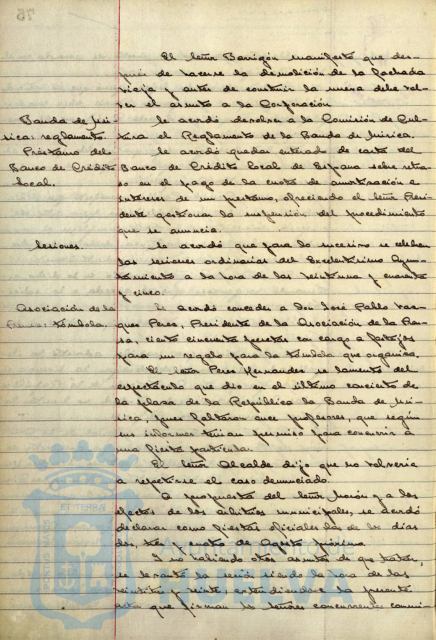 75
El Señor Barrigón manifestó que des-
pués de hacerse la demolición de la fachada
vieja y antes de construir la nueva debe vol-
ver el asunto a la Corporación
Banda de Mú-
sica: reglamento.
Se acordó devolver a la Comisión de Cul-
tura el Reglamento de la Banda de Música.
Préstamo del
Banco de Crédito
Local.
Se acordó quedar enterado de carta del
Banco de Crédito Local de España sobre retra-
so en el pago de la cuota de amortización e
intereses de un préstamo, ofreciendo el Señor Presi-
dente gestionar la suspensión del procedimiento
que se anuncia.
Sesiones.
Se acordó que para lo sucesivo se celebren
las sesiones ordinarias del Excelentísimo Ayun-
tamiento a la hora de las veintiuna y cuarenta
y cinco.
Asociación de la
Prensa: tómbola.
Se acordó conceder a Don José Pablo Vaz-
ques Peres, Presidente de la Asociación de la Pren-
sa, ciento cincuenta pesetas con cargo a festejos
para un regalo para la tómbola que organiza.
El Señor Peres Hernandes se lamentó del
espectáculo que dio en el último concierto de
la plaza de la República la Banda de Mú-
sica, pues faltaron once profesores, que según
sus informes tenían permiso para concurrir á
una fiesta particular.
El Señor Alcalde dijo que no volvería
a repetirse el caso denunciado.
A propuesta del Señor y a los
efectos de los arbitrios municipales, se acordó
declarar como fiestas oficiales las de los días
dos, tres y cuatro de Agosto próximo.
Y no habiendo otros asuntos de que tratar,
se levantó la sesión siendo la hora de las
veintitres y veinte, extendiéndose la presente
acta que firman los señores concurrentes conmi-